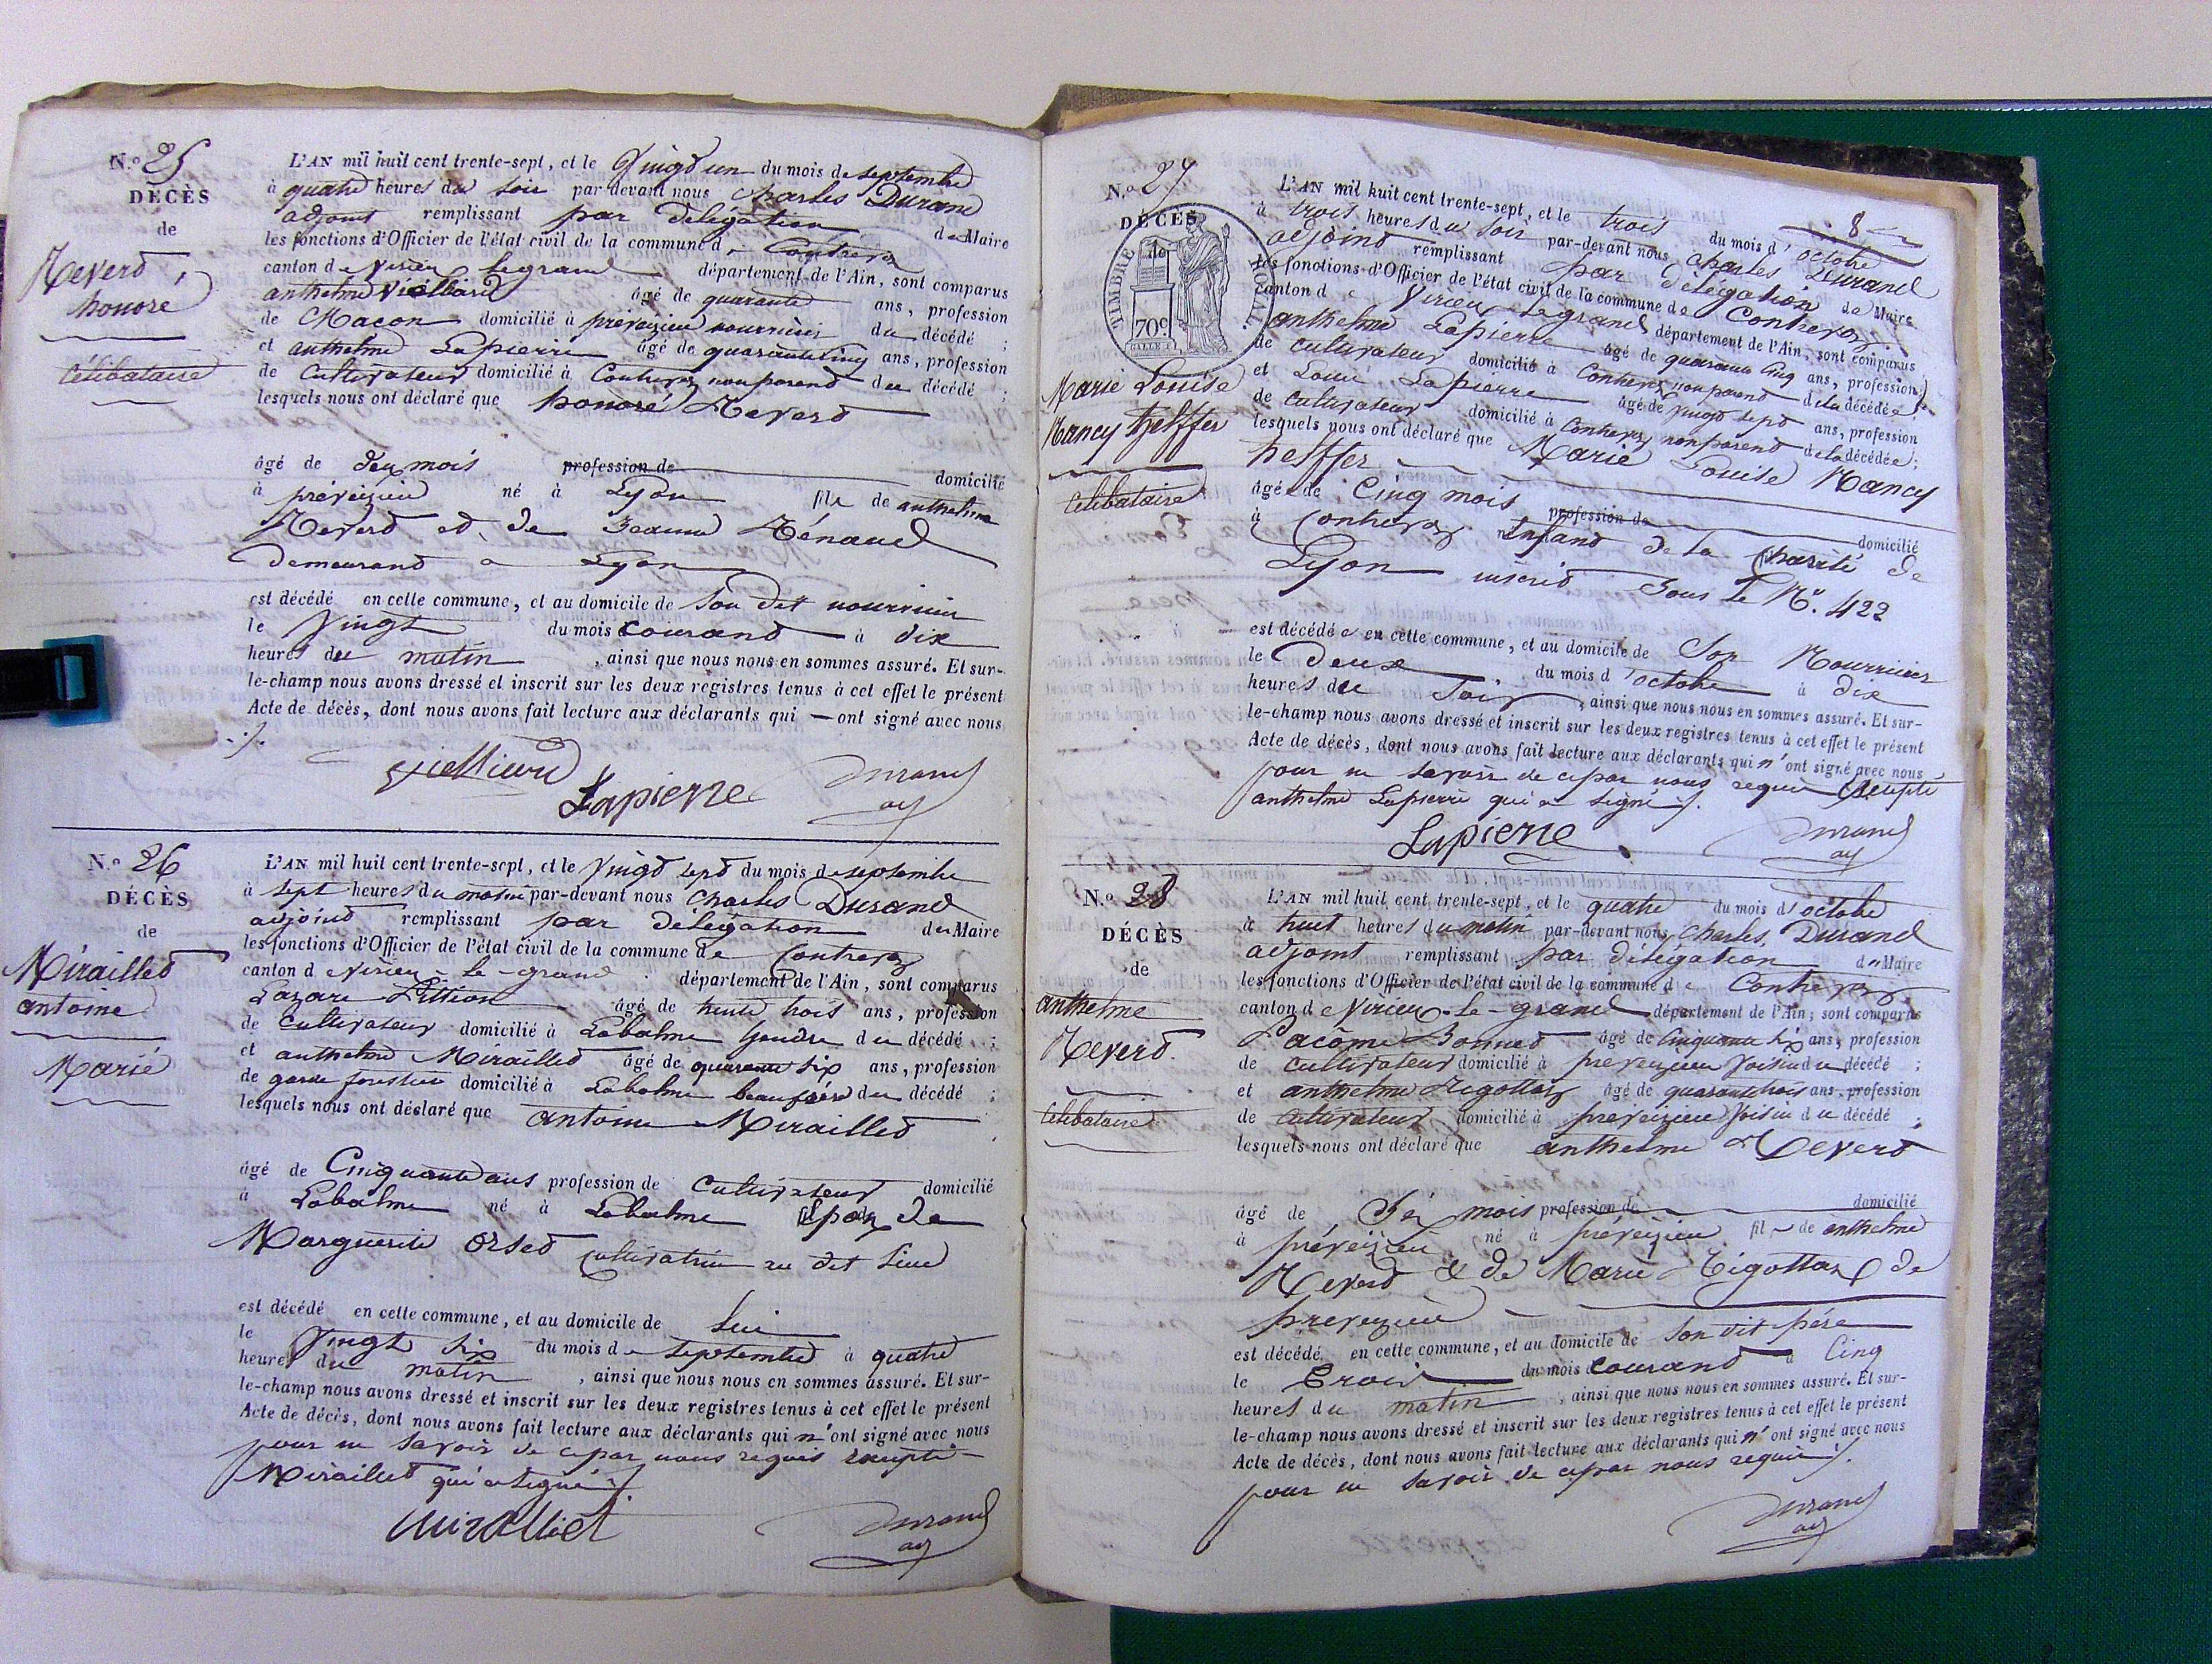 N.º 25
DÉCÈS
de
Reverd
honoré
célibataire
L'AN mil huit cent trente-sept, et le Vingt un du mois de septembre
à quatre heures du soir par-devant nous Charles Durand
adjoint remplissant par Délégation de Maire
les fonctions d'Officier de l'état civil de la commune de Contrevoz
canton de Virieu le grand département de l'Ain, sont comparus
anthelme âgé de quarante ans, profession
de Maçon domicilié à préveizieu nourricier du décédé ;
et anthelme Lapierre âgé de quarante cinq ans, profession
de Cultivateur domicilié à Contrevoz non parend du décédé ;
lesquels nous ont déclaré que honoré Reverd
âgé de deux mois profession de domicilié
à préveizieu né à Lyon fils de anthelme
Reverd et de Jeanne Rénaud
demeurand a Lyon
est décédé en cette commune, et au domicile de Son dit nourricier
le Vingt du mois Courand à dix
heures du matin , ainsi que nous nous en sommes assuré. Et sur-
le-champ nous avons dressé et inscrit sur les deux registres tenus à cet effet le présent
Acte de décès, dont nous avons fait lecture aux déclarants qui — ont signé avec nous
Lapierre
Durand
adj
N.º 26
DÉCÈS
de
Mirailled
antoine
Marié
L'AN mil huit cent trente-sept, et le Vingt sept du mois de septembre
à sept heures du matin par-devant nous Charles Durand
adjoint remplissant par délégation du Maire
les fonctions d'Officier de l'état civil de la commune de Contrevoz
canton de Virieu-le-grand département de l'Ain, sont comparus
Lazare Pittion âgé de trente trois ans, profession
de Cultivateur domicilié à Labalme Gendre du décédé ;
et anthelme Mirailled âgé de quarante six ans, profession
de garde forestier domicilié à Labalme beaufrère du décédé ;
lesquels nous ont déclaré que antoine Mirailled
âgé de Cinquante ans profession de Cultivateur domicilié
à Labalme né à Labalme Epoux de
Marguerite Orsed Cultivatrice au dit lieu
est décédé en cette commune, et au domicile de lui
le Vingt six du mois de Septembre à quatre
heures du matin , ainsi que nous nous en sommes assuré. Et sur-
le-champ nous avons dressé et inscrit sur les deux registres tenus à cet effet le présent
Acte de décès, dont nous avons fait lecture aux déclarants qui n'ont signé avec nous
pour ne savoir de ce par nous requis excepté
Mirailled qui a signé
miralliet
Durand
adj
8
N.º 27
DÉCÈS
de
TIMBRE ROYAL
70c
Marie Louise
Nancy helffer
Célibataire
L'AN mil huit cent trente-sept, et le trois du mois d'octobre
à trois heures du soir par-devant nous Charles Durand
adjoind remplissant par délégation de Maire
les fonctions d'Officier de l'état civil de la commune de Contrevoz
canton de Virieu-le-grand département de l'Ain, sont comparus
anthelme Lapierre âgé de quarante cinq ans, profession
de cultivateur domicilié à Contrevoz non parend de la décédée ;
et Louis Lapierre âgé de vingt sept ans, profession
de Cultivateur domicilié à Contrevoz non parend de la décédée ;
lesquels nous ont déclaré que Marie Louise Nancy
helffer
âgée de Cinq mois profession de domicilié
à Contrevoz Enfand de la Charité de
Lyon inscrit Sous le N.º 422
est décédée en cette commune, et au domicile de Son Nourricier
le Deux du mois d'octobre à dix
heures du Soir , ainsi que nous nous en sommes assuré. Et sur-
le-champ nous avons dressé et inscrit sur les deux registres tenus à cet effet le présent
Acte de décès, dont nous avons fait lecture aux déclarants qui n'ont signé avec nous
pour ne savoir de ce par nous requis Excepté
anthelme Lapierre qui a signé
Lapierre
Durand
adj
N.º 28
DÉCÈS
de
anthelme
Reverd
Célibataire
L'AN mil huit cent trente-sept, et le quatre du mois d'octobre
à huit heures du matin par-devant nous Charles Durand
adjoint remplissant par délégation du Maire
les fonctions d'Officier de l'état civil de la commune de Contrevoz
canton de Virieu-le-grand département de l'Ain, sont comparus
Pacôme Bonned âgé de Cinquante six ans, profession
de cultivateur domicilié à preveizieu Voisin du décédé ;
et anthelme Rigottaz âgé de quarante trois ans, profession
de Cultivateur domicilié à preveizieu Voisin du décédé ;
lesquels nous ont déclaré que anthelme Reverd
âgé de Six mois profession de domicilié
à préveizieu né à préveizieu fils de anthelme
Reverd & de Marie Rigottaz de
preveizieu
est décédé en cette commune, et au domicile de son dit père
le Trois du mois Courand à Cinq
heures du matin , ainsi que nous nous en sommes assuré. Et sur-
le-champ nous avons dressé et inscrit sur les deux registres tenus à cet effet le présent
Acte de décès, dont nous avons fait lecture aux déclarants qui n'ont signé avec nous
pour ne savoir de ce par nous requis
Durand
adj